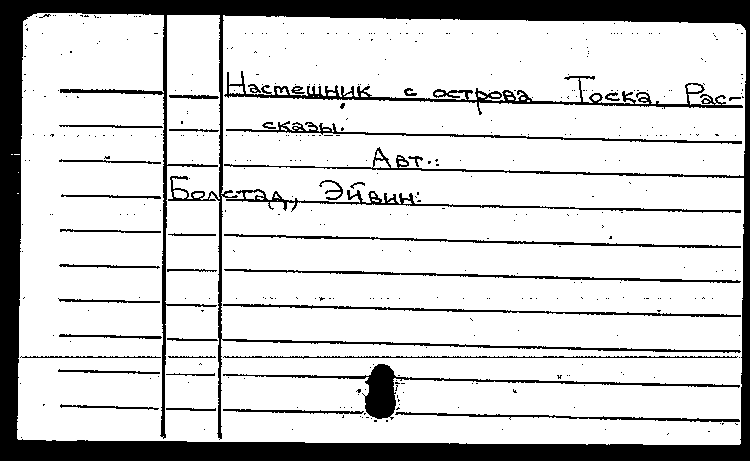 Насмешник с острова Тоска. Рас-
сказы.
Авт.:
Болстад, Эйвин: